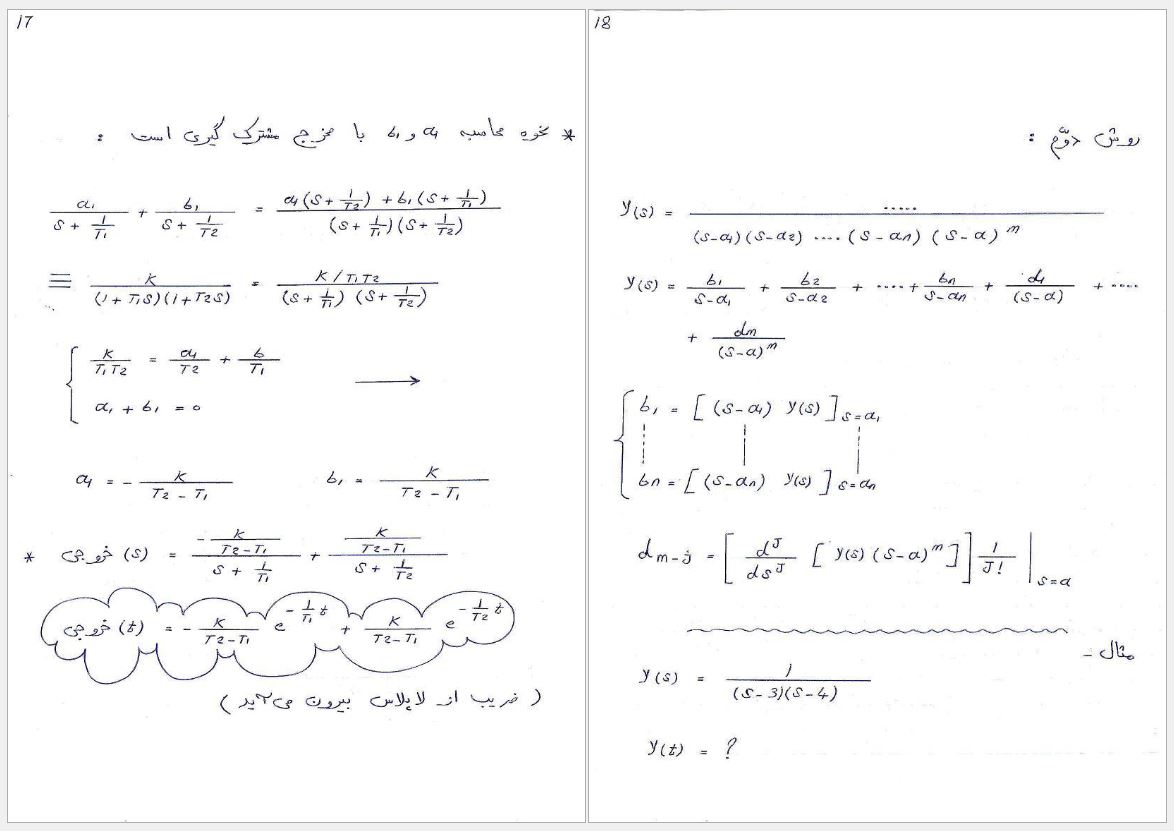 17
* نحوه محاسبه a₁ و b₁ با مخرج مشترک گیری است :
a₁/(S + 1/T₁) + b₁/(S + 1/T₂) = (a₁(S + 1/T₂) + b₁(S + 1/T₁))/((S + 1/T₁)(S + 1/T₂))
≡ K/((1 + T₁S)(1 + T₂S)) = (K/T₁T₂)/((S + 1/T₁)(S + 1/T₂))
{ K/(T₁T₂) = a₁/T₂ + b/T₁ →
a₁ + b₁ = 0
a₁ = - K/(T₂ - T₁) b₁ = K/(T₂ - T₁)
* خروجی (s) = (-K/(T₂-T₁))/(S + 1/T₁) + (K/(T₂-T₁))/(S + 1/T₂)
خروجی (t) = - K/(T₂-T₁) e^(-(1/T₁)t) + K/(T₂-T₁) e^(-(1/T₂)t)
( ضریب از لاپلاس بیرون می آید )
18
روش دوّم :
y(s) = ...../((S-a₁)(S-a₂) .... (S-aₙ)(S-a)^m)
y(s) = b₁/(S-a₁) + b₂/(S-a₂) + ....+ bₙ/(S-aₙ) + d₁/(S-a) + ....
+ dₘ/(S-a)^m
{ b₁ = [ (S-a₁) y(s) ]_{S=a₁}
bₙ = [ (S-aₙ) y(s) ]_{S=aₙ}
d_{m-j} = [ d^J/ds^J [ y(s) (S-a)^m ] ] 1/J! |_{S=a}
مثال -
y(s) = 1/((S-3)(S-4))
y(t) = ?